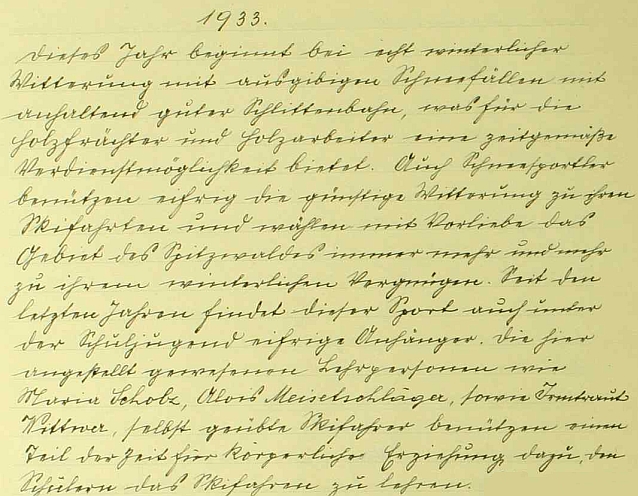 1933.
Dieses Jahr beginnt bei echt winterlicher
Witterung mit ausgibigen Schneefällen mit
anhaltend guter Schlittenbahn, was für die
Holzfrächter und Holzarbeiter eine zeitgemäße
Verdienstmöglichkeit bietet. Auch Schneesportler
benützen eifrig die günstige Witterung zu ihren
Skifahrten und wählen mit Vorliebe das
Gebiet des Spitzwaldes immer mehr und mehr
zu ihrem winterlichen Vergnügen. Seit den
letzten Jahren findet dieser Sport auch unter
der Schuljugend eifrige Anhänger. Die hier
angestellt gewesenen Lehrpersonen wie
Maria Scholz, Alois Meisetschläger, sowie Irmtraut
Wittwer, selbst geübte Skifahrer benützen einen
Teil der Zeit für körperliche Erziehung dazu, den
Schülern das Skifahren zu lehren.